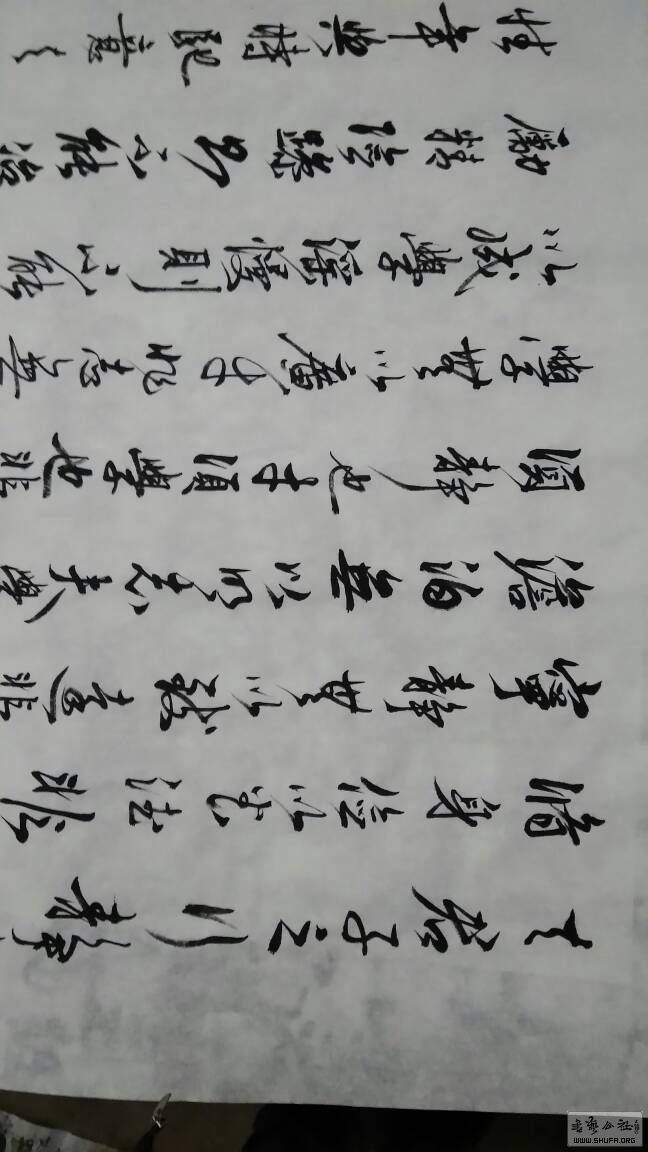 夫君子之行靜
脩身儉以養德非
寧靜無以致遠非
澹泊無以明志夫學
須靜也才須學也非
學無以廣才非志無
以成學淫慢則不能
勵精險躁則不能治
性年與時馳意
書藝公社
WWW.SHUFA.ORG